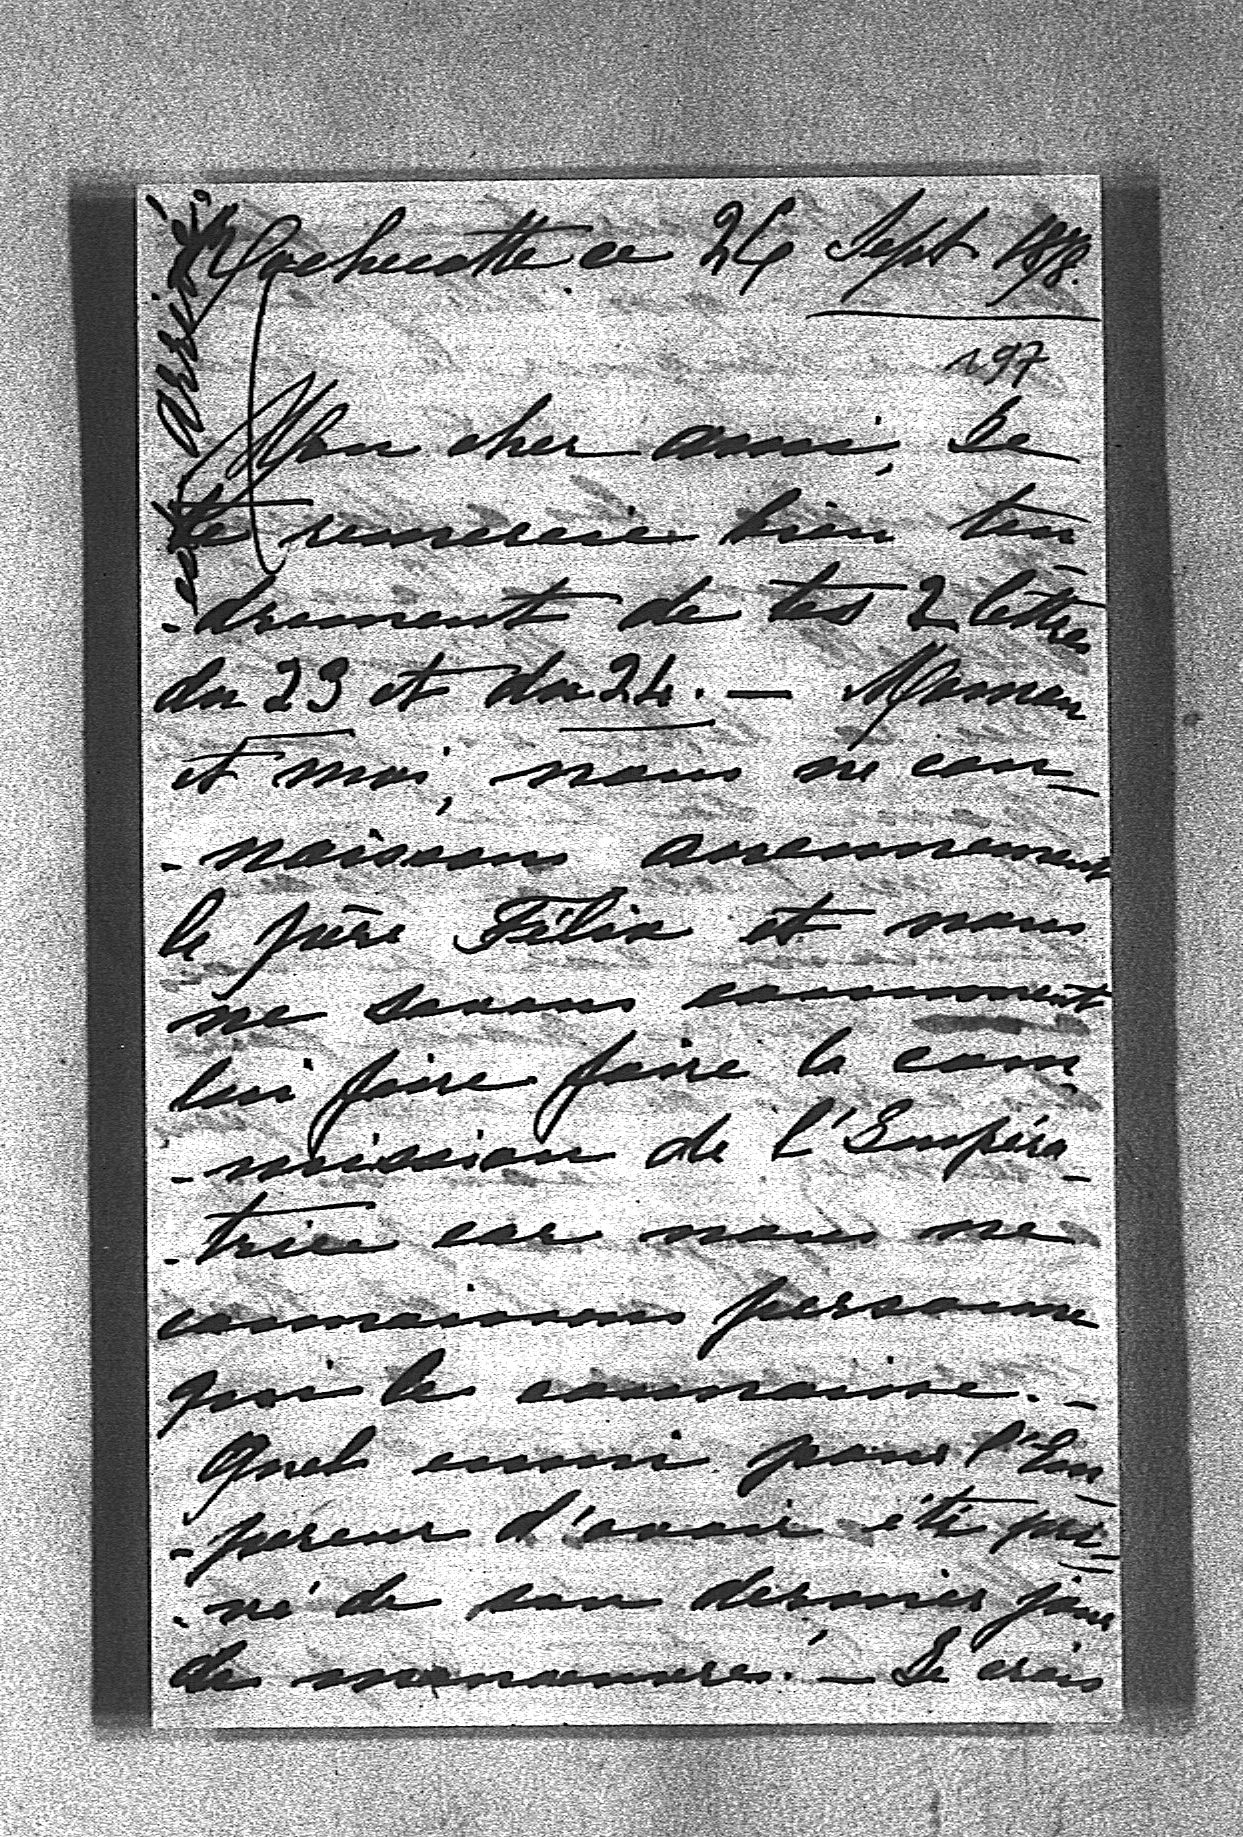 Rochecotte ce 26 Sept 1878.
197
Mon cher ami, Je
te remercie bien ten
-drement de tes 2 lettres
du 23 et du 24. — Maman
et moi, nous ne con-
-naissons aucunement
le père Félix et nous
ne savons comment
lui faire faire la com
-mission de l'Impéra-
-trice car nous ne
connaissons personne
qui le connaisse. -
Quel ennui pour l'Em
-pereur d'avoir été pri-
-vé de son dernier jour
de manœuvres. — Je crois